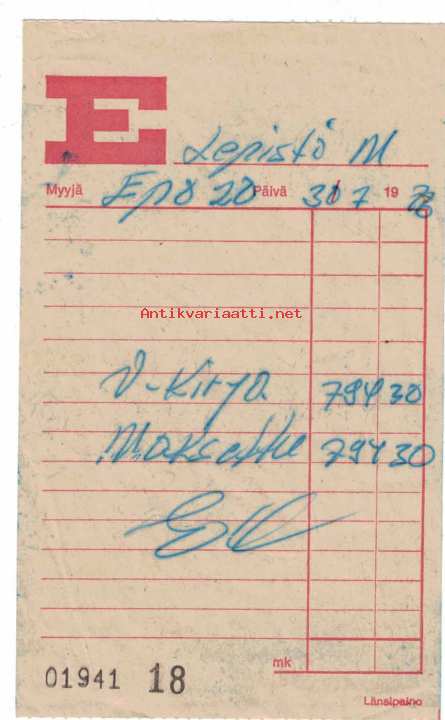 E
Lepistö M
Myyjä Epo 20 Päivä 30 7 19 76
Antikvariaatti.net
V-Kirja 794 30
Maksettu 794 30
mk
01941 18
Länsipaino